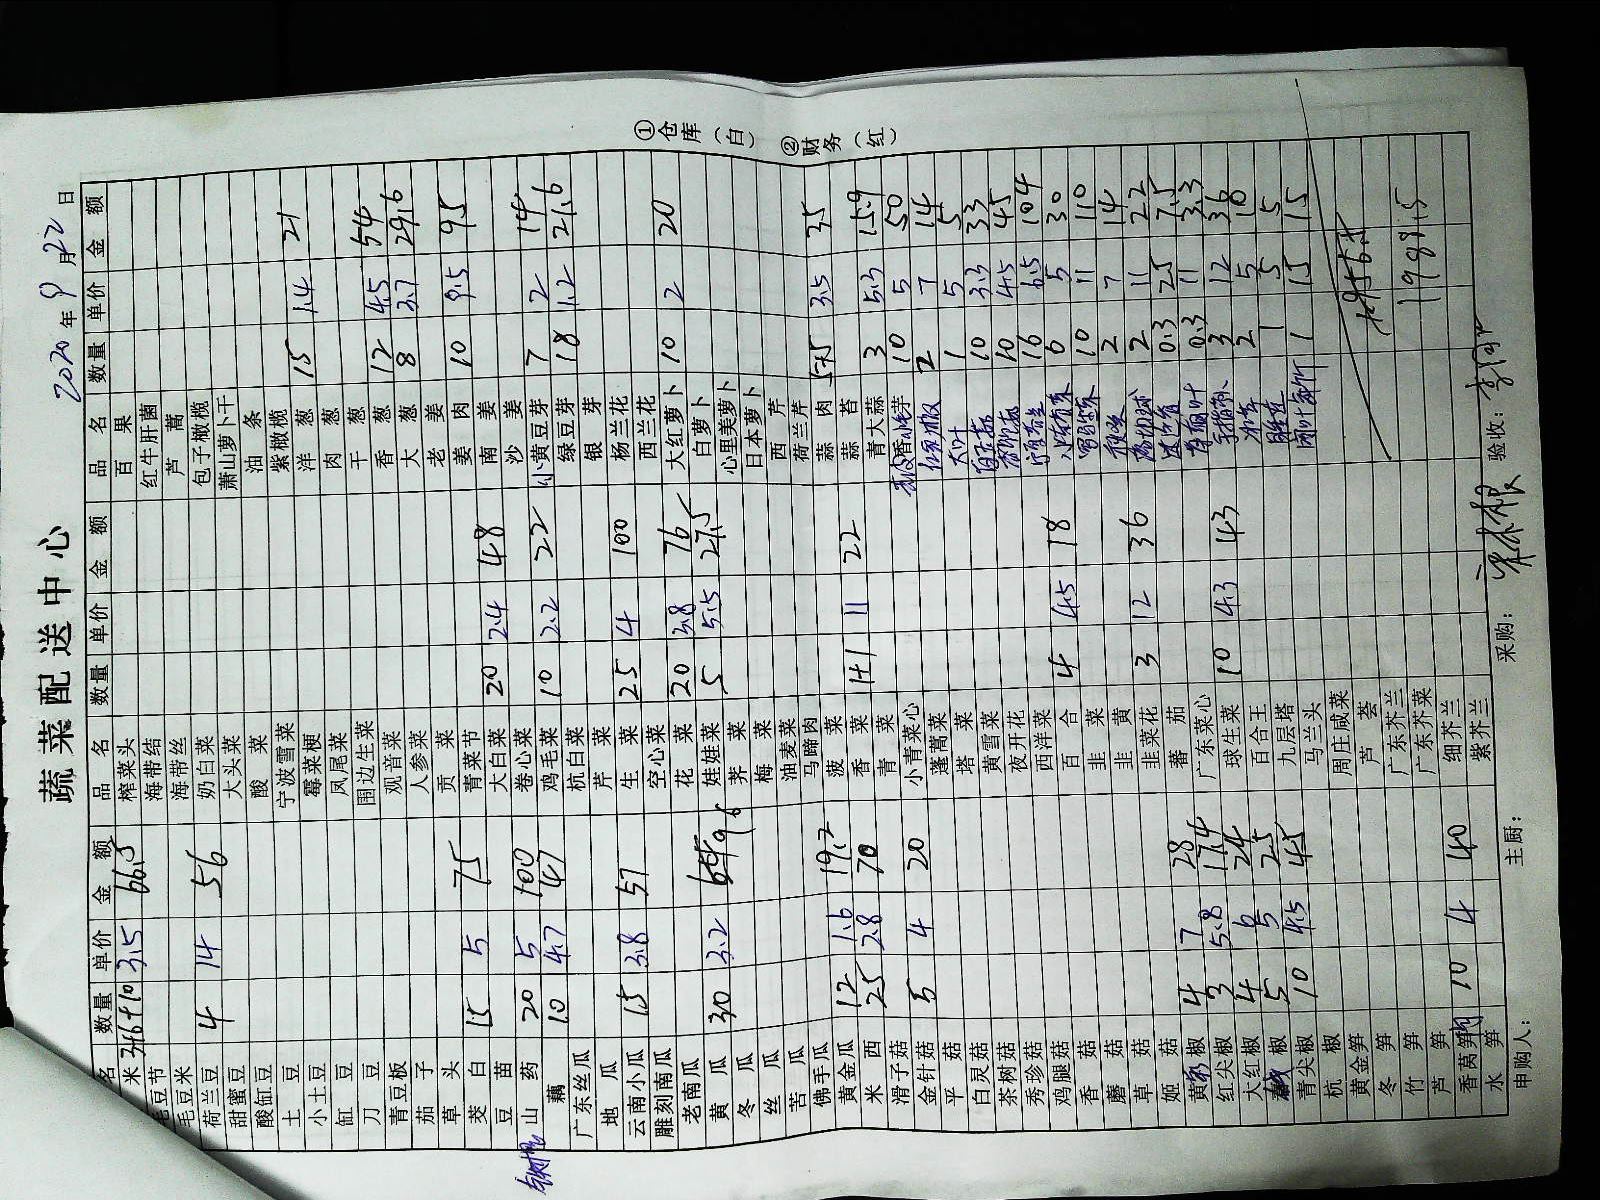 蔬菜配送中心
2020年9月22日
数量 单价 金额 品名 数量 单价 金额 品名 数量 单价 金额
米 3.5 66.5 榨菜头 百果
毛豆节 海带结 红牛肝菌
毛豆米 海带丝 芦蒿
荷兰豆 4 14 56 奶白菜 包子橄榄
甜蜜豆 大头菜 萧山萝卜干
酸缸豆 酸菜 油条
土豆 宁波雪菜 紫橄榄
小土豆 霉菜梗 洋葱 15 1.4 21
缸豆 凤尾菜 肉葱
刀豆 围边生菜 干葱
青豆板 观音菜 香葱 12 4.5 54
茄子 人参菜 大葱 8 3.7 29.6
草头 贡菜 老姜
茭白 15 5 75 青菜节 姜肉 10 9.5 95
豆苗 大白菜 20 2.4 48 南姜
山药 20 5 100 卷心菜 沙姜
藕 10 4.7 47 鸡毛菜 10 2.2 22 小黄豆芽 7 2 14
广东丝瓜 杭白菜 绿豆芽 18 1.2 21.6
地瓜 芹菜 银芽
云南小瓜 15 3.8 57 生菜 25 4 100 杨兰花
雕刻南瓜 空心菜 西兰花
老南瓜 花菜 20 3.8 76 大红萝卜 10 2 20
黄瓜 30 3.2 96 娃娃菜 5 5.5 27.5 白萝卜
冬瓜 荠菜 心里美萝卜
丝瓜 梅菜 日本萝卜
苦瓜 油麦菜 西芹
佛手瓜 马蹄肉 荷兰芹
黄金瓜 12 1.6 19.2 菠菜 蒜肉 3.5 35
米西 25 2.8 70 香菜 1+1 11 22 蒜苔
滑子菇 青菜 青大蒜 3 5.3 15.9
金针菇 5 4 20 小青菜心 香芋 10 5 50
平菇 蓬蒿菜 2 7 14
白灵菇 塔菜 大叶 1 5 5
茶树菇 黄雪菜 10 3.3 33
秀珍菇 夜开花 10 4.5 45
鸡腿菇 西洋菜 16 6.5 104
香菇 百合 4 4.5 18 6 5 30
蘑菇 韭菜 10 11 110
草菇 韭黄 2 7 14
姬菇 韭菜花 3 12 36 2 11 22
黄彩椒 4 7 28 蕃茄 0.3 25 7.5
红尖椒 3 5.8 17.4 广东菜心 0.3 11 3.3
大红椒 4 6 24 球生菜 10 4.3 43 3 12 36
椒 5 5 25 百合王 2 5 10
青尖椒 10 4.5 45 九层塔 1 5 5
杭椒 马兰头 1 15 15
黄金笋 周庄咸菜
冬笋 芦荟
竹笋 广东芥兰
芦笋 广东芥菜 1988.5
香莴笋 10 4 40 细芥兰
水笋 紫芥兰
申购人： 主厨： 采购： 验收：
①仓库（白） ②财务（红）